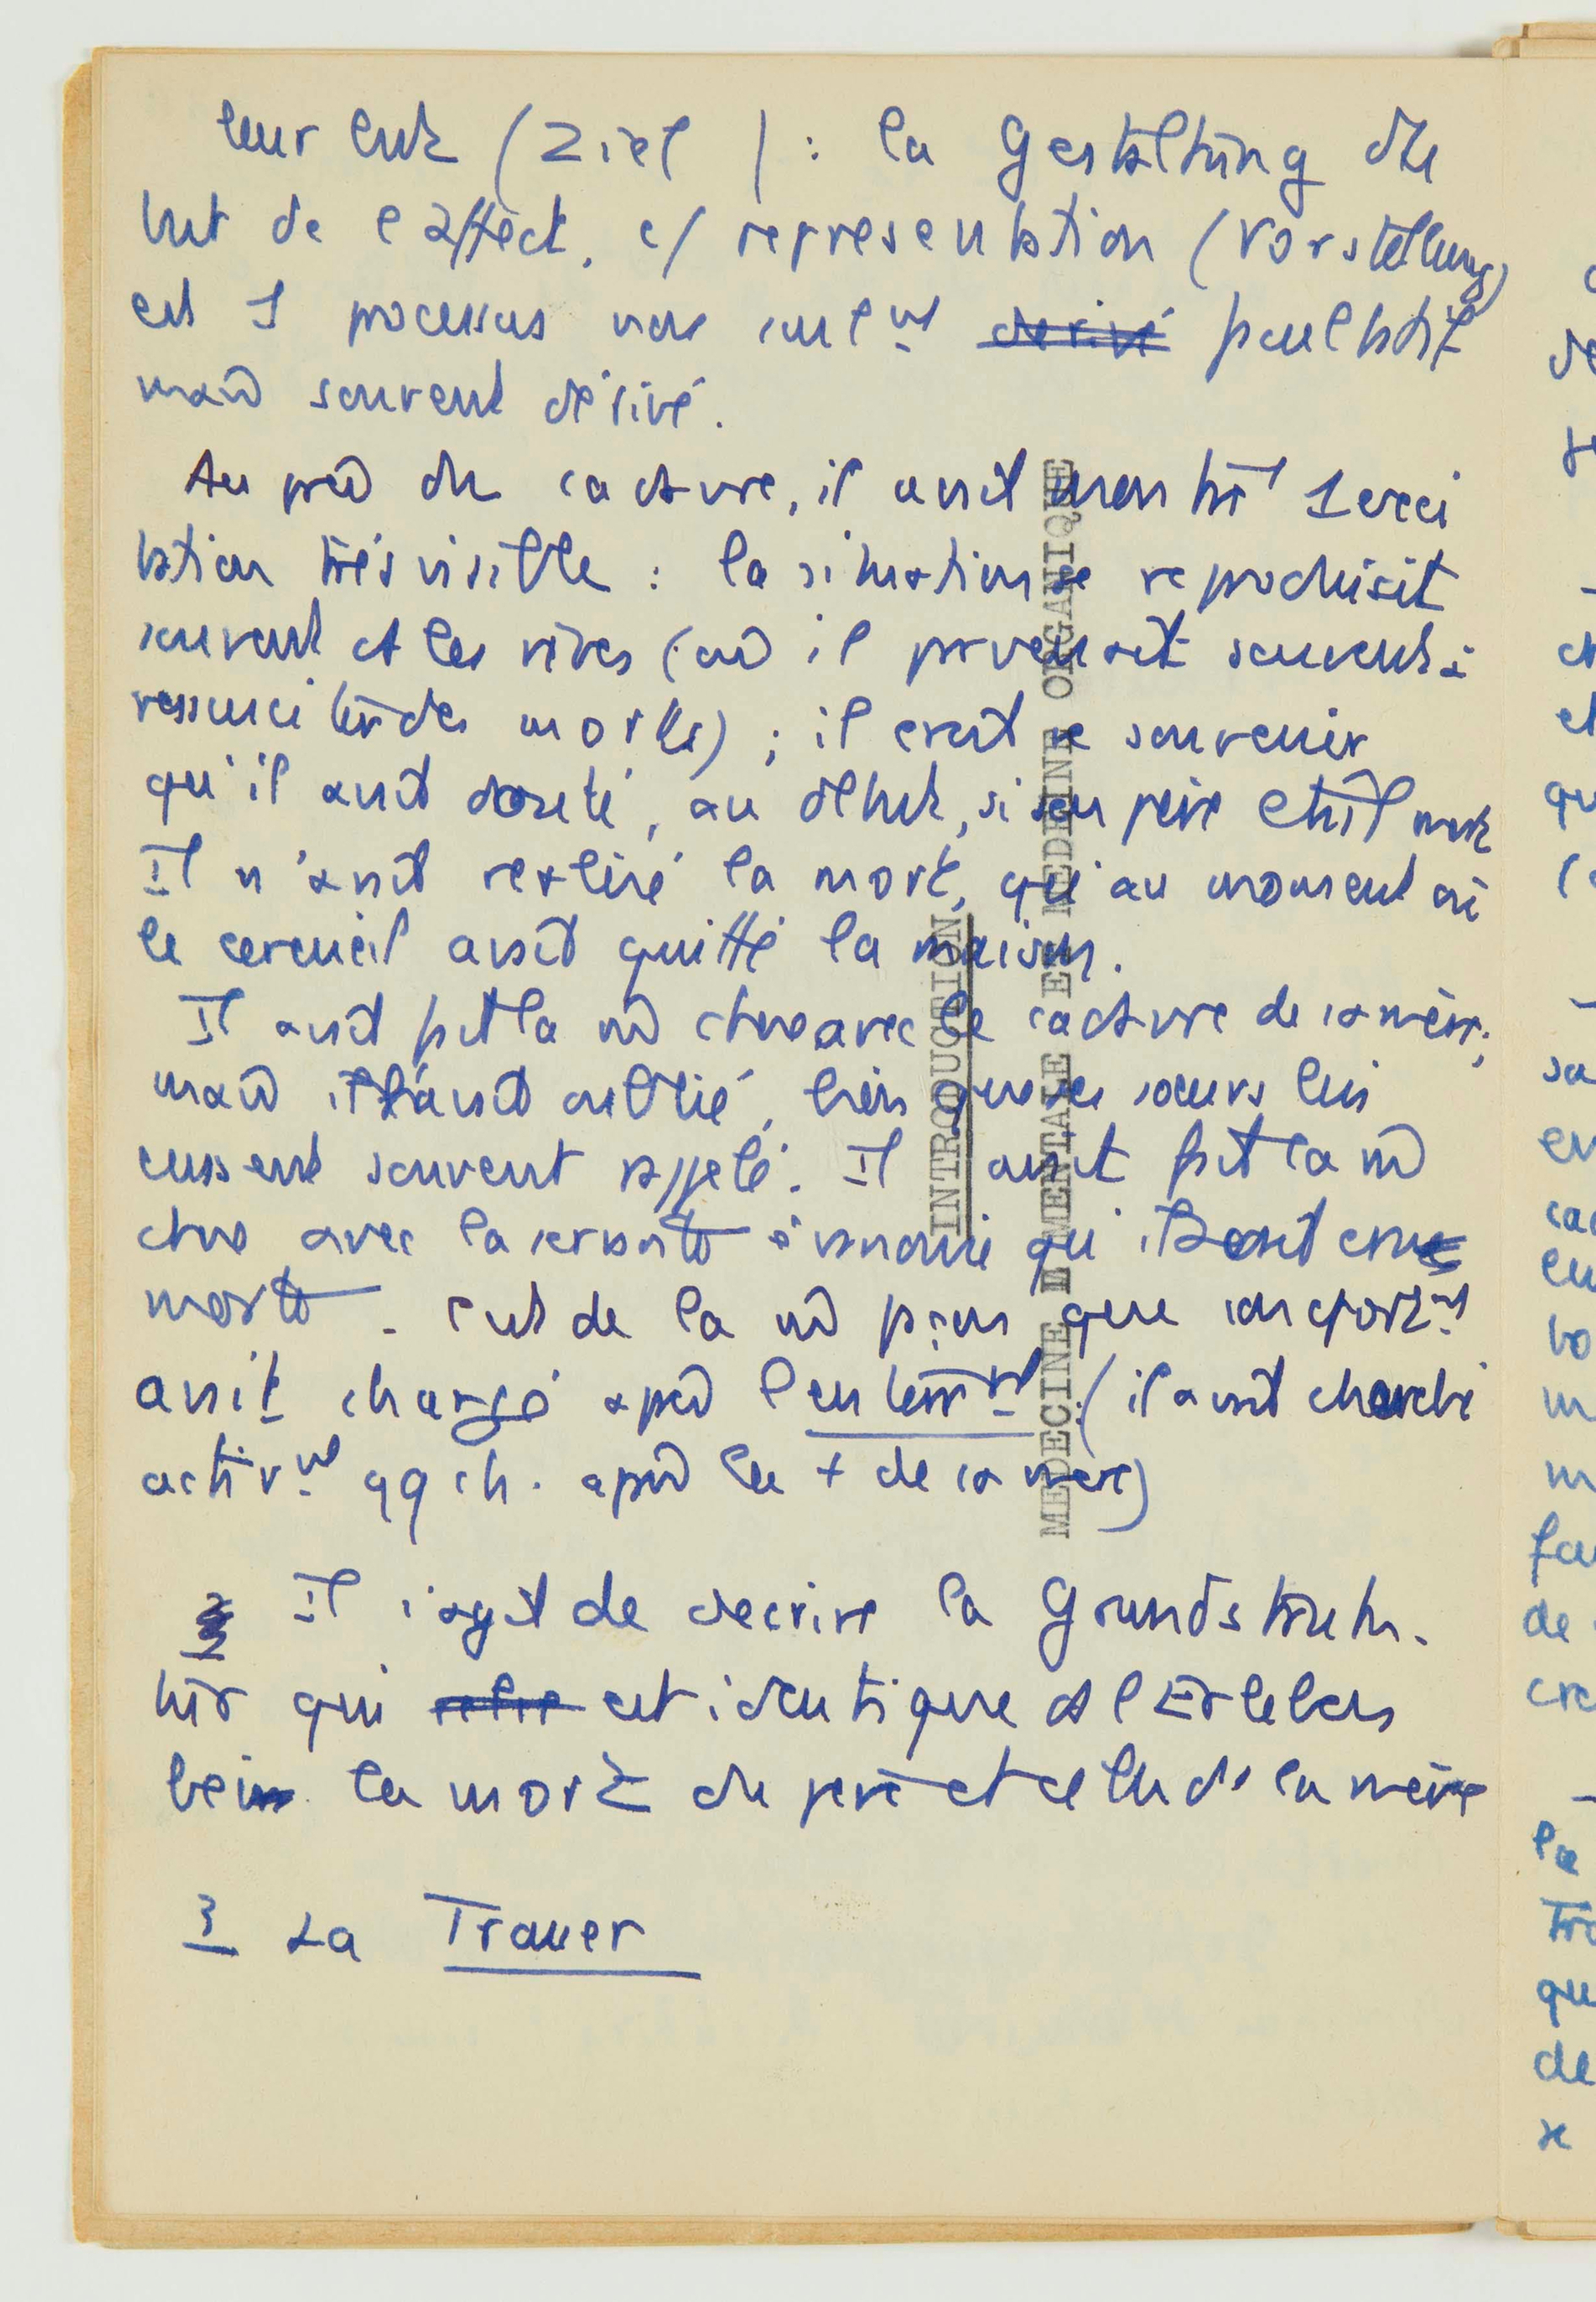 leur but (Ziel) : la Gestaltung du
but de l'affect, c/ representation (Vorstellung)
est 1 processus non seult ~~derivé~~ facultatif
mais souvent dérivé.
Auprès du cadavre, il avait montré 1 exci
tation très visible : la situation se reproduisit
souvent ds les rêves (où il parvenait souvent à
ressusciter des morts) ; il croit se souvenir
qu'il avait douté, au début, si son père était mort
Il n'avait réalisé la mort, qu'au moment où
le cercueil avait quitté la maison.
Il avait fait la m chose avec le cadavre de sa mère ;
mais il l'avait oublié, bien que ses soeurs lui
eussent souvent rappelé. Il avait fait la m
chose avec la servante évanouie qu'il avait crue
morte. C'est de la m façon que son comportt
avait changé après l'enterrt (il avait cherché
activt qq ch. après la + de sa mère)
Il s'agit de decrire la Grundstruk-
tur qui est identique ds l'Erleben
beim la mort du père et celle de la mère
3 La Trauer
INTRODUCTION
MEDECINE MENTALE ET MEDECINE ORGANIQUE